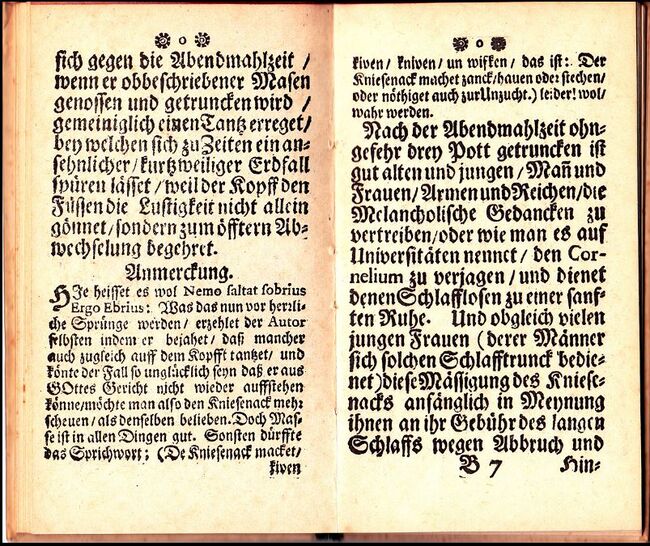 0
sich gegen die Abendmahlzeit /
wenn er obbeschriebener Masen
genossen und getruncken wird /
gemeiniglich einen Tantz erreget /
bey welchen sich zu Zeiten ein an-
sehnlicher / kurtzweiliger Erdfall
spüren lässet / weil der Kopff den
Füssen die Lustigkeit nicht allein
gönnet / sondern zum öfftern Ab-
wechselung begehret.
Anmerckung.
HJe heisset es wol Nemo saltat sobrius
Ergo Ebrius: Was das nun vor herrli-
che Sprünge werden / erzehlet der Autor
selbsten indem er bejahet / daß mancher
auch zugleich auff dem Kopfft tantzet / und
könte der Fall so unglücklich seyn daß er aus
GOttes Gericht nicht wieder auffstehen
könne/möchte man also den Kniesenack mehr
scheuen / als denselben belieben. Doch Mas-
se ist in allen Dingen gut. Sonsten dürffte
das Sprichwort; (De Kniesenack macket /
kiven
0
kiven / kniven / un wifken / das ist: Der
Kniesenack machet zanck / hauen oder stechen /
oder nöthiget auch zur Unzucht.) leider! wol /
wahr werden.
Nach der Abendmahlzeit ohn-
gefehr drey Pott getruncken ist
gut alten und jungen / Mañ und
Frauen / Armen und Reichen / die
Melancholische Gedancken zu
vertreiben / oder wie man es auf
Universitäten nennet / den Cor-
nelium zu verjagen / und dienet
denen Schlafflosen zu einer sanf-
ten Ruhe. Und obgleich vielen
jungen Frauen (derer Männer
sich solchen Schlafftrunck bedie-
net) diese Mässigung des Kniese-
nacks anfänglich in Meynung
ihnen an ihr Gebühr des langen
Schlaffs wegen Abbruch und
B 7 Hin-